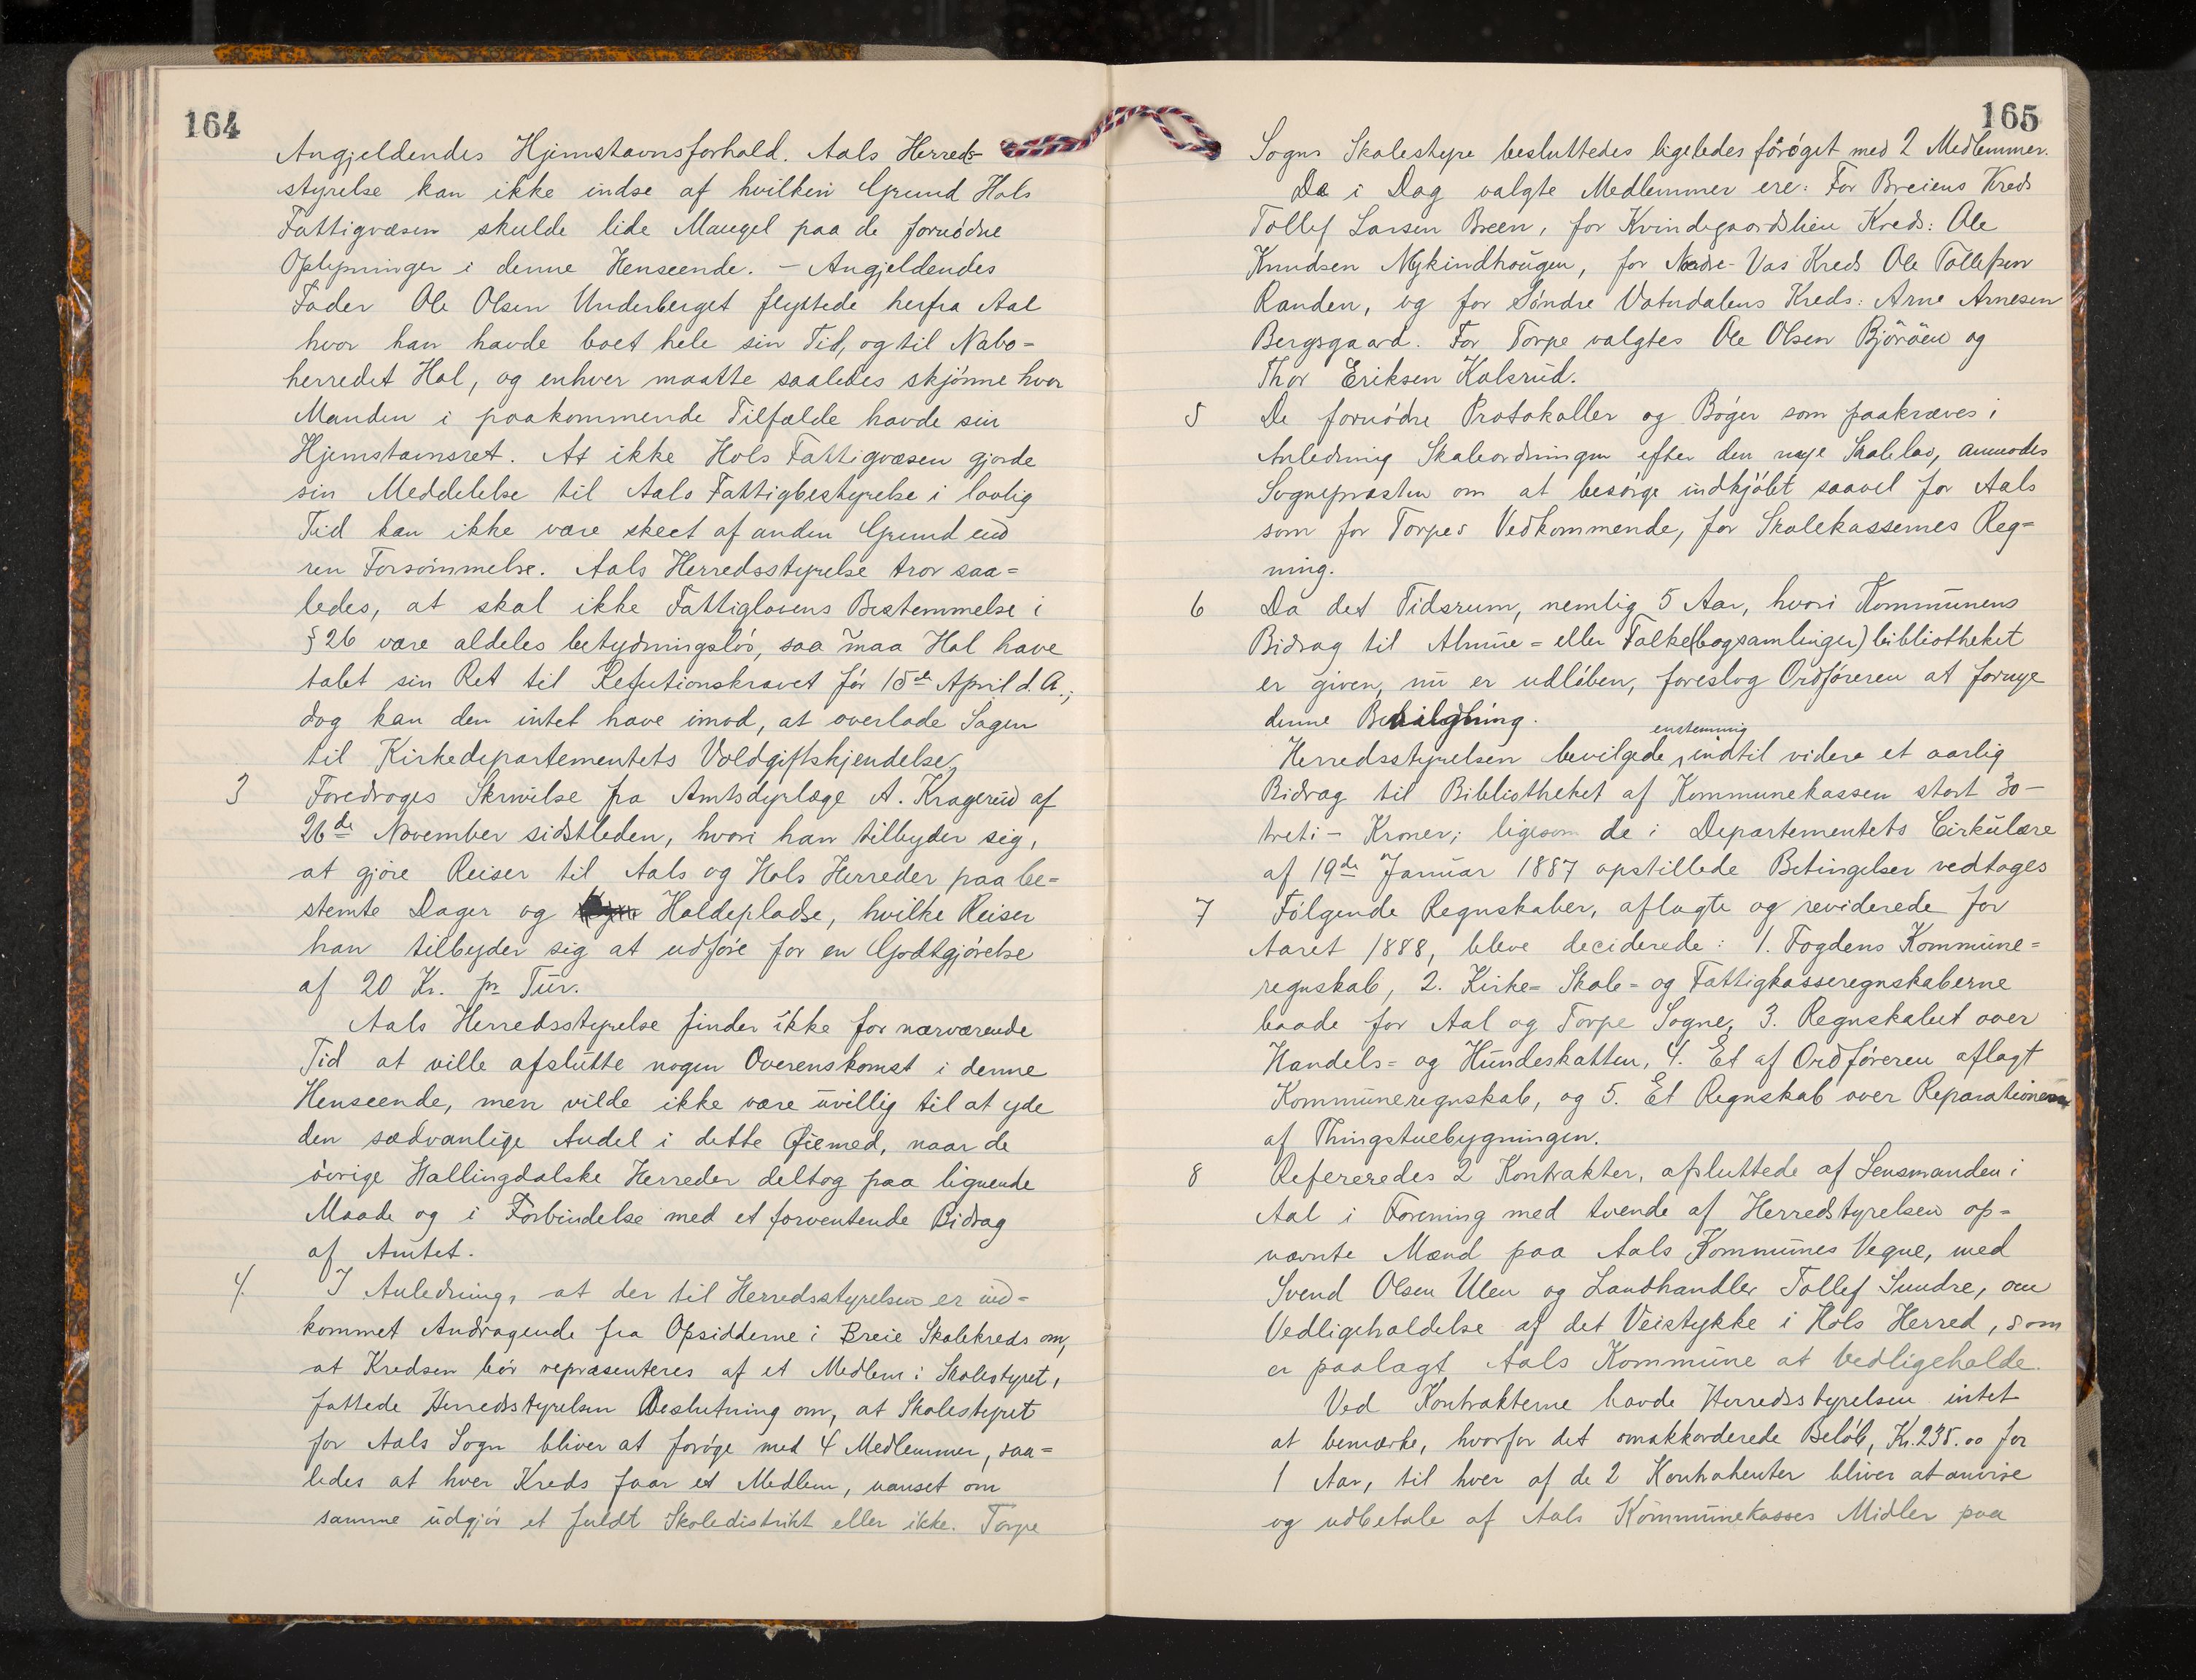 164
Angjeldendes Hjemstavnsforhold. Aals Herreds-
styrelse kan ikke indse af hvilken Grund Hols
Fattigvæsen skulde lide Mangel paa de fornødne
Oplysninger i denne Henseende. - Angjeldendes
Fader Ole Olsen Underberget flyttede herfra Aal
hvor han havde boet hele sin Tid, og til Nabo=
herredet Hol, og enhver maatte saaledes skjønne hvor
Manden i paakommende Tilfælde havde sin
Hjemstavnsret. At ikke Hols Fattigvæsen gjorde
sin Meddelelse til Aals Fattigbestyrelse i lovlig
Tid kan ikke være skeet af anden Grund end
ren Forsømmelse. Aals Herredsstyrelse tror saa=
ledes, at skal ikke Fattiglovens Bestemmelse i
§ 26 være aldeles betydningsløs, saa maa Hol have
tabt sin Ret til Refutionskravet før 15de April d. A.;
dog kan den intet have imod, at overlade Sagen
til Kirkedepartementets Voldgiftskjendelse.
3 Foredroges Skrivelse fra Amtsdyrlæge A. Kragerud af
26de November sidstleden, hvori han tilbyder sig,
at gjøre Reiser til Aals og Hols Herreder paa be=
stemte Dager og Holdepladse, hvilke Reiser
han tilbyder sig at udføre for en Godtgjørelse
af 20 Kr. pr Tur.
Aals Herredsstyrelse finder ikke for nærværende
Tid at ville afslutte nogen Overenskomst i denne
Henseende, men vilde ikke være uvillig til at yde
den sædvanlige Andel i dette Øiemed, naar de
øvrige Hallingdalske Herreder deltog paa lignende
Maade og i Forbindelse med et forventende Bidrag
af Amtet.
4. I Anledning, at der til Herredsstyrelsen er ind=
kommet Andragende fra Opsidderne i Breie Skolekreds om,
at Kredsen bør repræsenteres af et Medlem i Skolestyret,
fattede Herredsstyrelsen Beslutning om, at Skolestyret
for Aals Sogn bliver at forøge med 4 Medlemmer, saa=
ledes at hver Kreds faar et Medlem, uanset om
samme udgjør et fuldt Skoledistrikt eller ikke. Torpe
165
Sogns Skolestyre besluttedes ligeledes forøget med 2 Medlemmer.
De i Dag valgte Medlemmer ere: For Breiens Kreds
Tollef Larsen Breen, for Kvindegaardslien Kreds: Ole
Knudsen Nykindhougen, for Nedre-Vas Kreds Ole Tollefsen
Randen, og for Søndre Vatsdalens Kreds: Arne Arnesen
Bergsgaard. For Torpe valgtes Ole Olsen Björöen og
Thor Eriksen Kolsrud.
5 De fornødne Protokoller og Bøger som paakræves i
Anledning Skoleordningen efter den nye Skolelov, anmodes
Sognepræsten om at besørge indkjøbt saavel for Aals
som for Torpes Vedkommende, for Skolekassernes Reg=
ning.
6 Da det Tidsrum, nemlig 5 Aar, hvori Kommunens
Bidrag til Almue = eller Folke(bogsamlinger)bibliotheket
er given, nu er udløben, foreslog Ordføreren at fornye
denne Bevilgning.
Herredsstyrelsen bevilgede enstemmig indtil videre et aarlig
Bidrag til Bibliotheket af Kommunekassen stort 30 -
treti - Kroner; ligesom de i Departementets Cirkulære
af 19de Januar 1887 opstillede Betingelser vedtoges
7 Følgende Regnskaber, aflagte og reviderede for
Aaret 1888, bleve deciderede: 1. Fogdens Kommune=
regnskab, 2. Kirke= Skole= og Fattigkasseregnskaberne
baade for Aal og Torpe Sogne, 3. Regnskabet over
Handels= og Hundeskatten, 4. Et af Ordføreren aflagt
Kommuneregnskab, og 5. Et Regnskab over Reparationen
af Thingstuebygningen.
8 Refereredes 2 Kontrakter, afsluttede af Lensmanden i
Aal i Forening med tvende af Herredstyrelsen op=
nævnte Mænd paa Aals Kommunes Vegne, med
Svend Olsen Ulen og Landhandler Tollef Sundre, om
Vedligeholdelse af det Veistykke i Hols Herred, som
er paalagt Aals Kommune at vedligeholde.
Ved Kontrakterne havde Herredsstyrelsen intet
at bemærke, hvorfor det omakkorderede Beløb, Kr. 235.00 for
1 Aar, til hver af de 2 Kontrahenter bliver at anvise
og udbetale af Aals Kommunekasses Midler paa